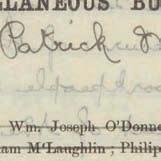 LLANEOUS BU
Patrick
Wm. Joseph O'Donne
am M'Laughlin; Philip